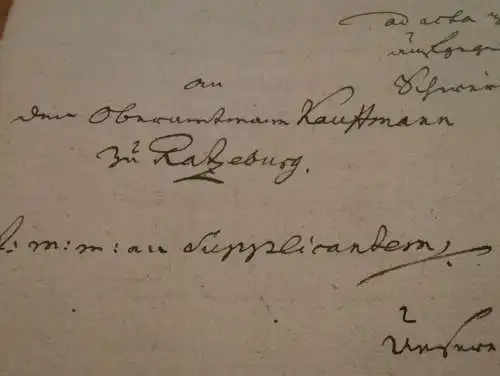 ad acta
Schwer
an
den Oberamtmann Kauffmann
zu Ratzeburg.
m: m: an Supplicandem,
Unsern